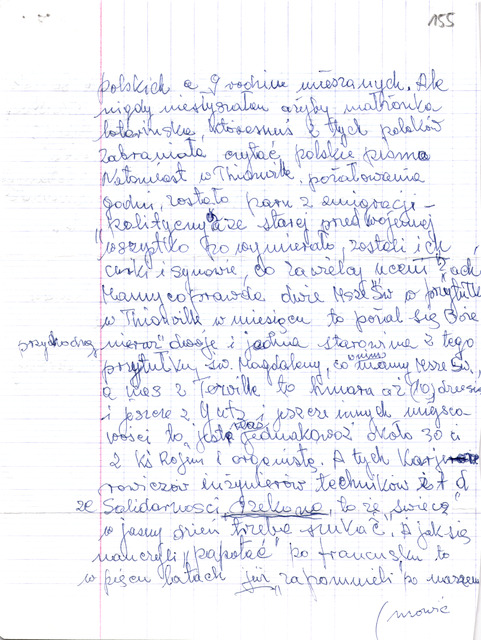 155
polskich a 9 rodzin mieszanych. Ale
nigdy niesłyszałem ażeby małżonka
lotaryńska, któremuś z tych polaków
zabraniała czytać polskie pisma
Natomiast w Thionville, pożałowania
godni, zostało paru z emigracji
politycznych a ze starej przedwojennej
"wszystko powymierało, zostali ich
curki i synowie, co za wielcy uczeni z ach
Mamy co prawda dwie Msze Św w przytułku
w Thionville w miesiącu to pożal się Boże
przychodzą nieraz dwoje i jedna starowina z tego
przytułku św. Magdaleny, co mamy Msze Św,
a nas z Terville to chmara aż (10) dziesięć
i jeszcze z Yutz, i jeszcze innych miejsco
wości to jest jednakowoż około 30 ci
z Ks Rojem i organistą. A tych Karje
rowiczów inżynierów techników i t d
ze Solidarności rzekome, to że "świecą
w jasny dzień trzeba szukać", A jak się
nauczyli "papotać" po francusku to
w pięciu latach już "zapomnieli" po naszemu
(mówić